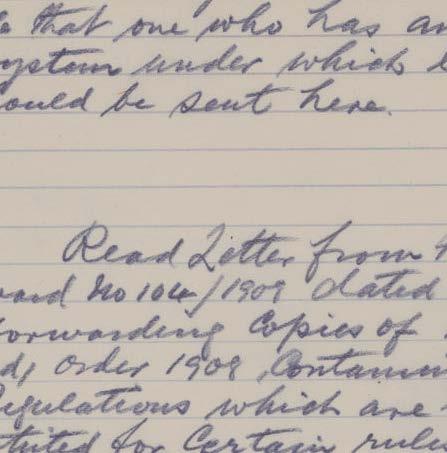 that one who has
ystem under which
ould be sent here.
Read Letter from
oard No 104/1909 dated
orwarding Copies of
order 1908, Contain
egulations which are
tuted for Certain rule